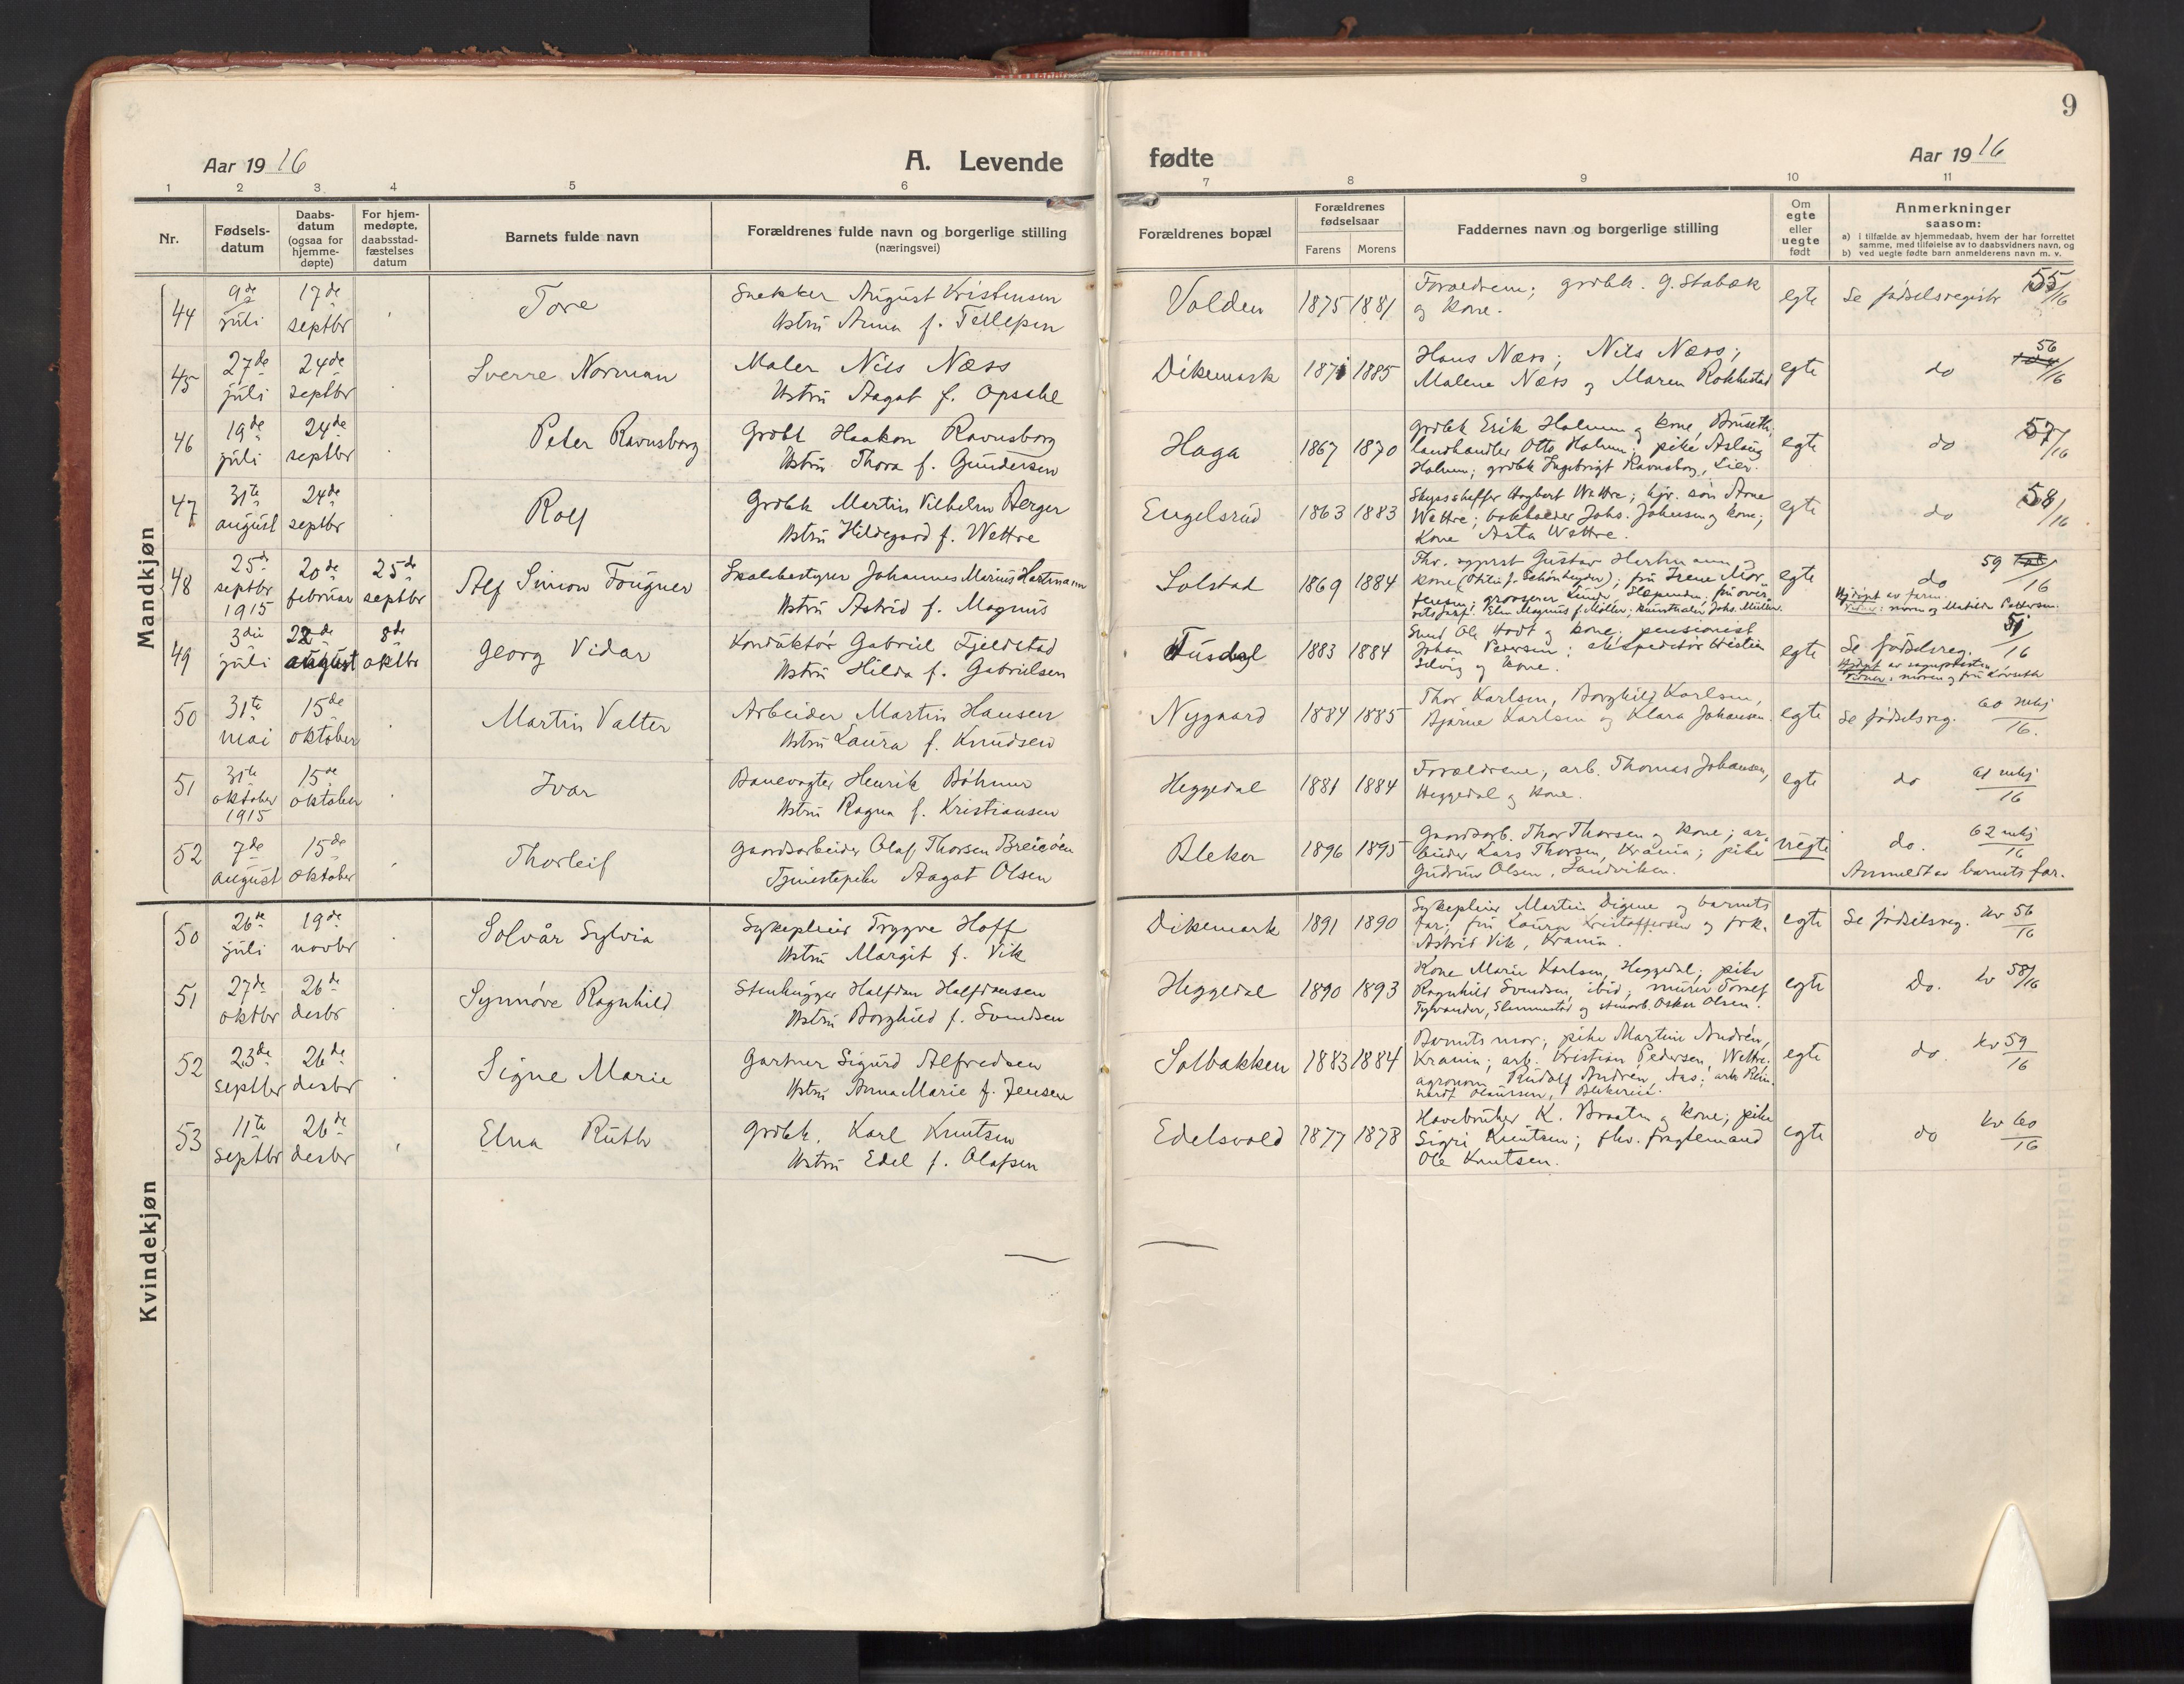 9
Aar 1916 A. Levende fødte Aar 1916
1 2 3 4 5 6 7 8 9 10 11
Nr.
Fødsels-
datum
Daabs-
datum
(ogsaa for
hjemme-
døpte)
For hjem-
medøpte,
daabsstad-
fæstelses
datum
Barnets fulde navn
Forældrenes fulde navn og borgerlige stilling
(næringsvei)
Forældrenes bopæl
Forældrenes
fødselsaar
Farens Morens
Faddernes navn og borgerlige stilling
Om
egte
eller
uegte
født
Anmerkninger
saasom:
a) i tilfælde av hjemmedaab, hvem der har forrettet
samme, med tilføielse av to daabsvidners navn, og
b) ved uegte fødte barn anmelderens navn m. v.
Mandkjøn
44
9de
juli
17de
septbr
Tore
Snekker August Kristensen
Ustru Anna f. Tellefsen
Volden
1875 1881
Forældrene; grdbk. G. Stabæk
og kone.
egte
Se fødselsregistr 55/16
45
27de
juli
24de
septbr
Sverre Norman
Maler Nils Næss
Hstru Aagot f. Opsahl
Dikemark
1871 1885
Hans Næss; Nils Næss;
Malene Næss og Maren Rokkestad
egte
do 56/16
46
19de
juli
24de
septbr
Peter Ravnsborg
Grdbk Haakon Ravnsborg
Hstru Thora f. Gundersen
Haga
1867 1870
grdbk Erik Holmen og kone, Bruseth;
landhandler Otto Holmen; pike Aslaug
Holmen; grdbk Ingebrigt Ravnsborg, Lier.
egte
do 57/16
47
31te
august
24de
septbr
Rolf
Grdbk Martin Vilhelm Berger
Hstru Hildegard f. Wettre
Engelsrud
1863 1883
Skydsskaffer Hagbart Wettre; gjr. søn Arne
Wettre; bokholder Johs. Johansen og kone;
Kone Asta Wettre.
egte
do 58/16
48
25de
septbr
1915
20de
februar
25de
septbr
Alf Simon Fougner
Skolebestyrer Johannes Marius Hartmann
Hstru Astrid f. Magnus
Solstad
1869 1884
Gustav Hartmann og
kone (Otilie f. Schönheyder); fru Irene Mor-
tensen; grosserer Lunde, Slependen;
Elen Magnus f. Møller; kunstmaler Johs. Müller.
egte
do 59/16
Hjdøpt av
moren og Matilde Pettersen.
49
3die
juli
22de
august
8de
oktbr
Georg Vidar
Konduktør Gabriel Fjeldstad
Hstru Hilda f. Gabrielsen
Fusdal
1883 1884
Smed Ole Hodt og kone; pensionist
Johan Pedersen; ekspeditør Kristian
Selvig og kone.
egte
Se fødselsreg. 51/16
Hjdøpt av sogneprest
moren og fru
50
31te
mai
15de
oktober
Martin Valter
Arbeider Martin Hansen
Hstru Laura f. Knudsen
Nygaard
1884 1885
Thor Karlsen, Borghild Karlsen,
Bjarne Karlsen og Klara Johansen.
egte
Se fødselsreg. 60 mkj/16.
51
31te
oktober
1915
15de
oktober
Ivar
Banevogter Henrik Bøhmer
Hstru Ragna f. Kristiansen
Heggedal
1881 1884
Forældrene, arb. Thomas Johansen,
Heggedal og kone.
egte
do 61 mkj/16
52
7de
august
15de
oktober
Thorleif
Gaardsarbeider Olaf Thorsen Breieøen
Tjenestepike Aagot Olsen
Bleker
1896 1895
Gaardsarb. Thor Thorsen og kone; ar-
beider Lars Thorsen, Krania; pike
Gudrun Olsen, Sandviken.
uegte
do. 62 mkj/16
Anmeldt av barnets far.
Kvindekjøn
50
26de
juli
19de
novbr
Solvår Sylvia
Sykepleier Trygve Hoff
Hstru Margit f. Vik
Dikemark
1891 1890
Sykepleier Martin Digene og barnets
far; fru Laura Kristoffersen og frk.
Astrid Vik, Krania.
egte
Se fødselsreg. kv 56/16
51
27de
oktbr
26de
desbr
Synnøve Ragnhild
Stenhugger Halfdan Halfdansen
Hstru Borghild f. Svendsen
Heggedal
1890 1893
Kone Marie Karlsen, Heggedal; pike
Ragnhild Svendsen, ibid; murer Toralf
Tyvander, Slemmestad og stenarb. Oskar Olsen.
egte
Do. kv 58/16
52
23de
septbr
26de
desbr
Signe Marie
Gartner Sigurd Alfredsen
Hstru Anna Marie f. Jensen
Solbakken
1883 1884
Barnets mor; pike Martine Andrén,
Krania; arb. Kristian Pedersen, Wettre;
agronom Rudolf Andrén, Aas; arb. Rein-
hardt Olaussen, Blekereie.
egte
do. kv 59/16
53
11te
septbr
26de
desbr
Elna Ruth
Grdbk. Karl Knutsen
Hstru Edel f. Olafsen
Edelsvold
1877 1878
Havebruker K. Braaten og kone; pike
Sigri Knutsen; fhv. fragtemand
Ole Knutsen.
egte
do kv 60/16